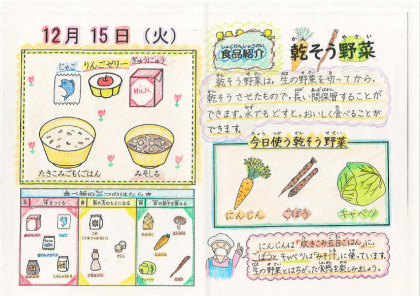 12月 15日 (火)
じゃこ りんごゼリー ぎゅうにゅう
MILK
たきこみごもくごはん みそしる
食品紹介
乾そう野菜
乾そう野菜は、生の野菜を切ってから、
乾そうさせたもので、長い間保管することが
できます。水でもどすと、おいしく食べることが
できます。
今日使う乾そう野菜
にんじん ごぼう キャベツ
にんじんは「炊きこみ五目ごはん」に、
ごぼうとキャベツは「みそ汁」に使っています。
生の野菜とはちがった食感を楽しみましょう。